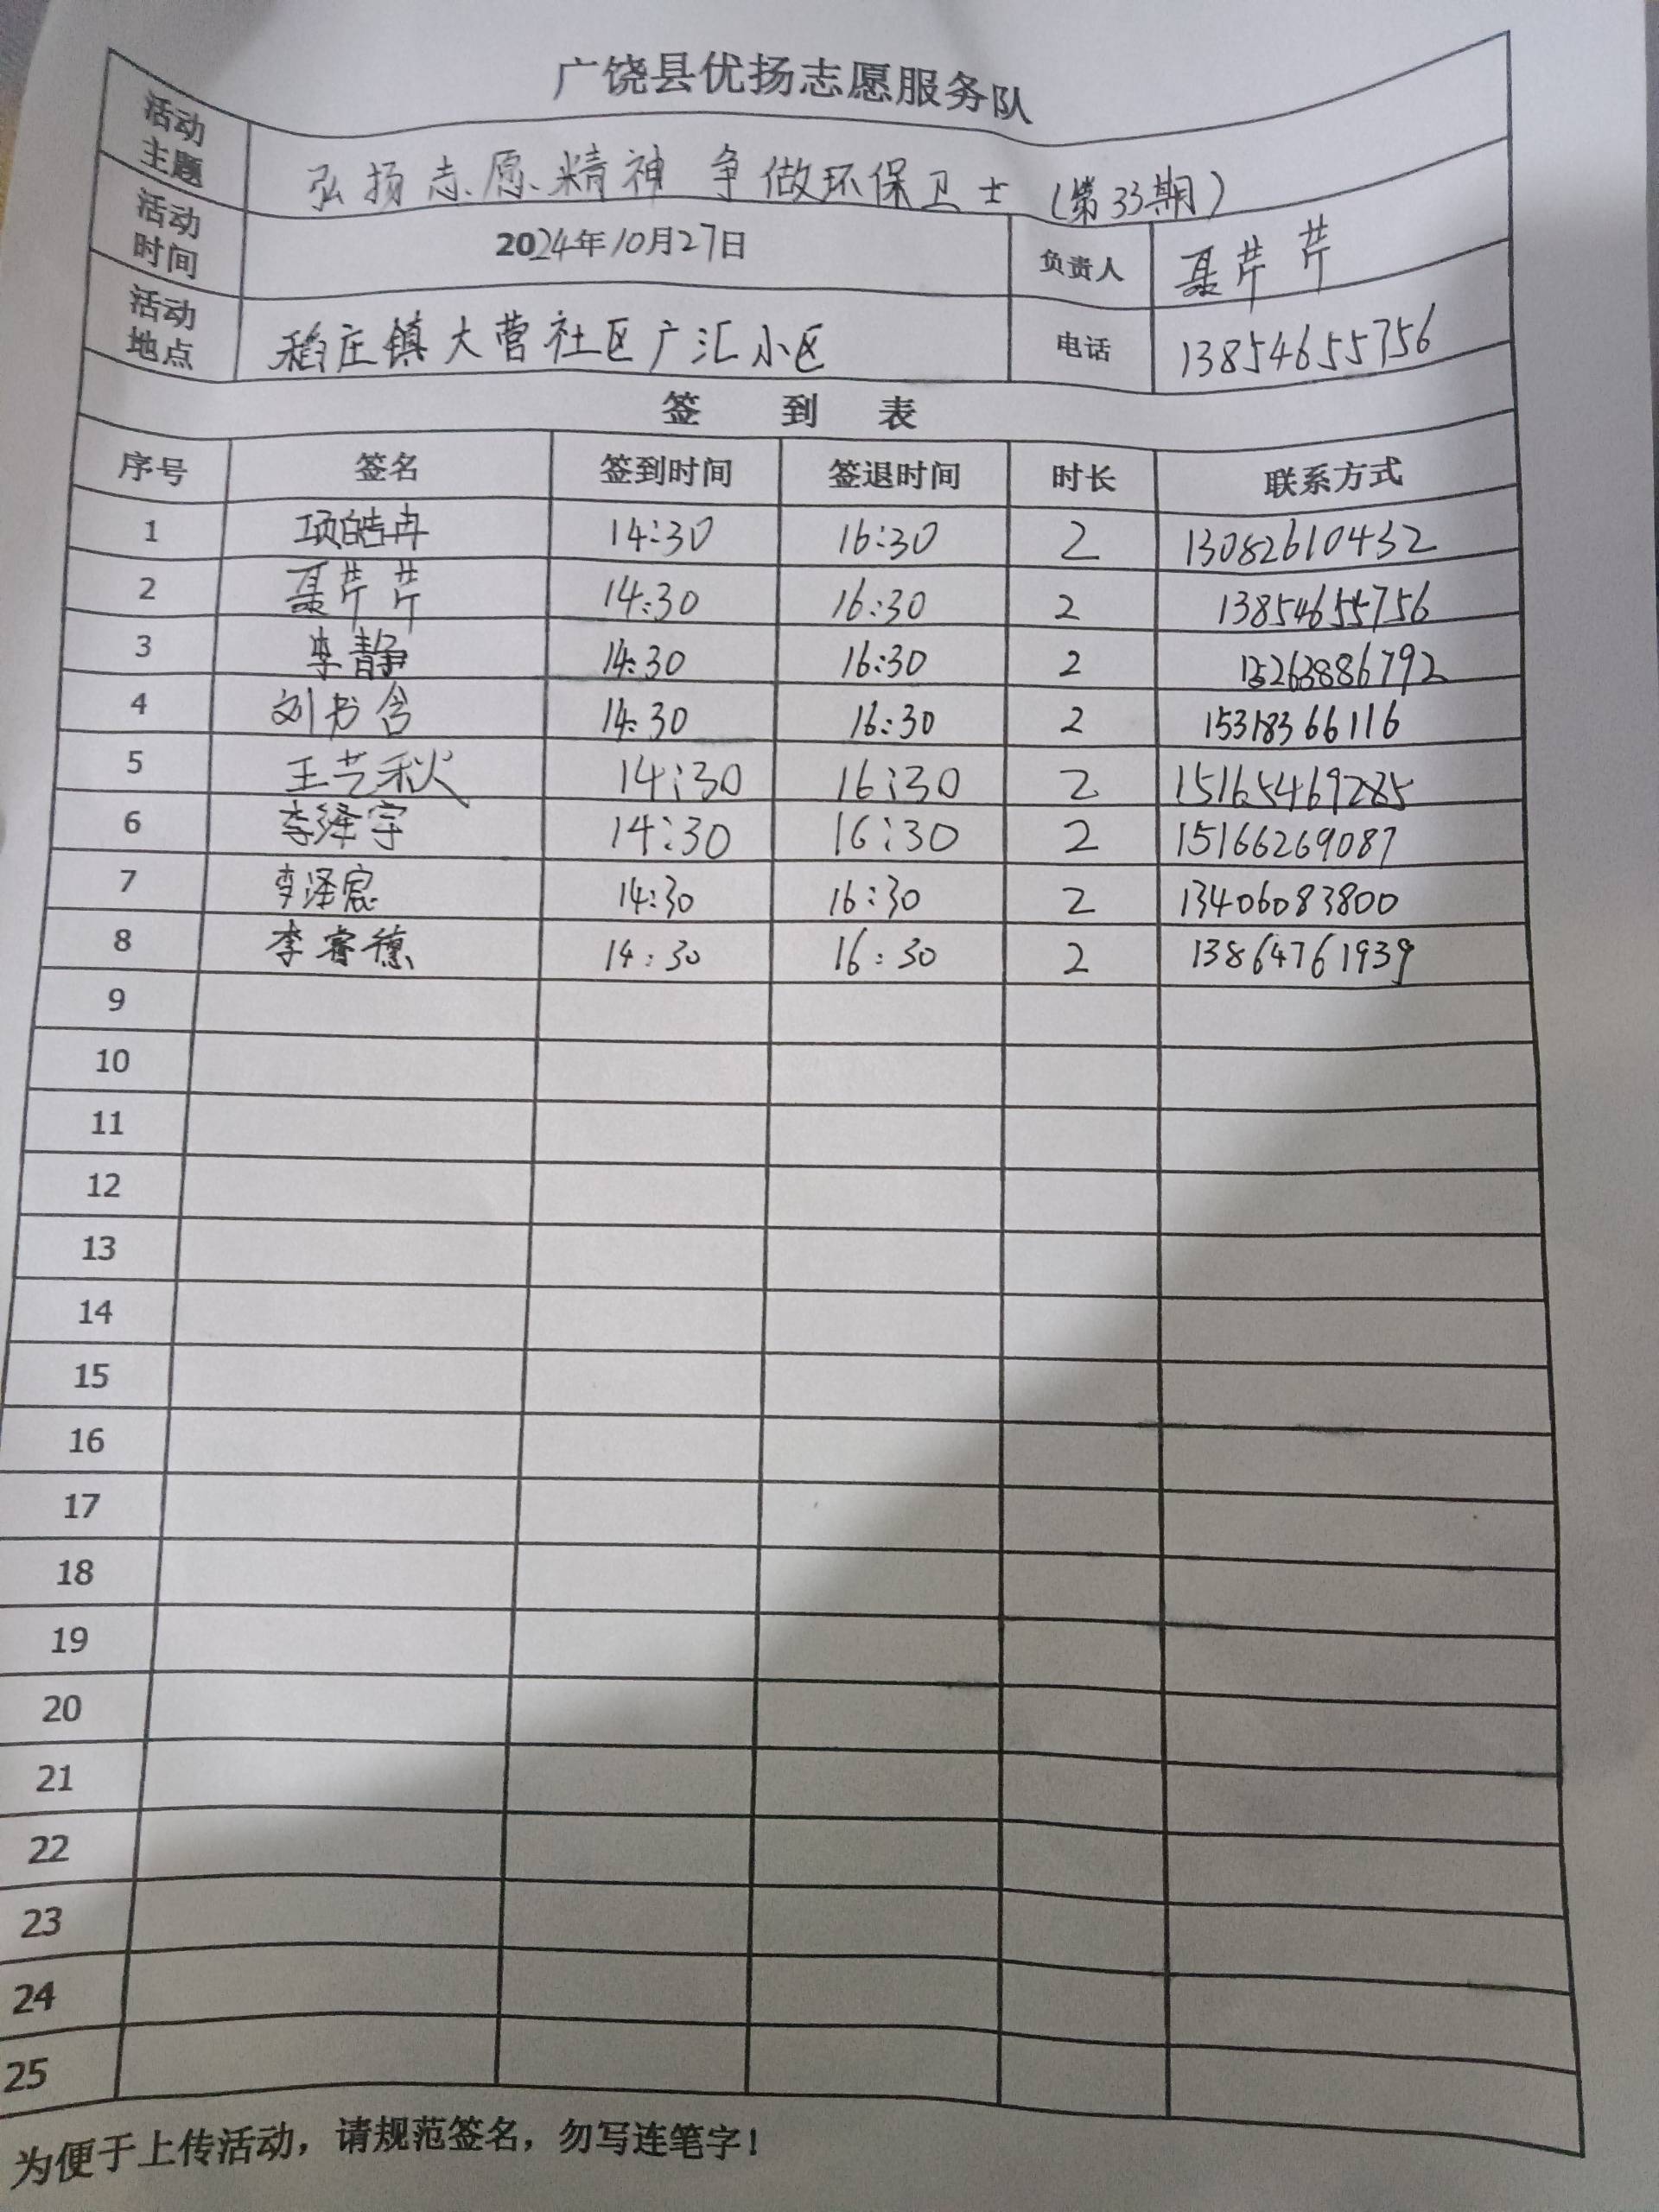 广饶县优扬志愿服务队
活动主题 弘扬志愿精神 争做环保卫士（第33期）
活动时间 2024年10月27日 负责人 聂芹芹
活动地点 稻庄镇大营社区广汇小区 电话 13854655756
签 到 表
序号 签名 签到时间 签退时间 时长 联系方式
1 项皓冉 14:30 16:30 2 13082610432
2 聂芹芹 14:30 16:30 2 13854655756
3 李静 14:30 16:30 2
4 刘书含 14:30 16:30 2 15318366116
5 王艺秋 14:30 16:30 2 15165469285
6 李泽宇 14:30 16:30 2 15166269087
7 李泽宸 14:30 16:30 2 13406083800
8 李睿德 14:30 16:30 2 13864761939
9
10
11
12
13
14
15
16
17
18
19
20
21
22
23
24
25
为便于上传活动，请规范签名，勿写连笔字！